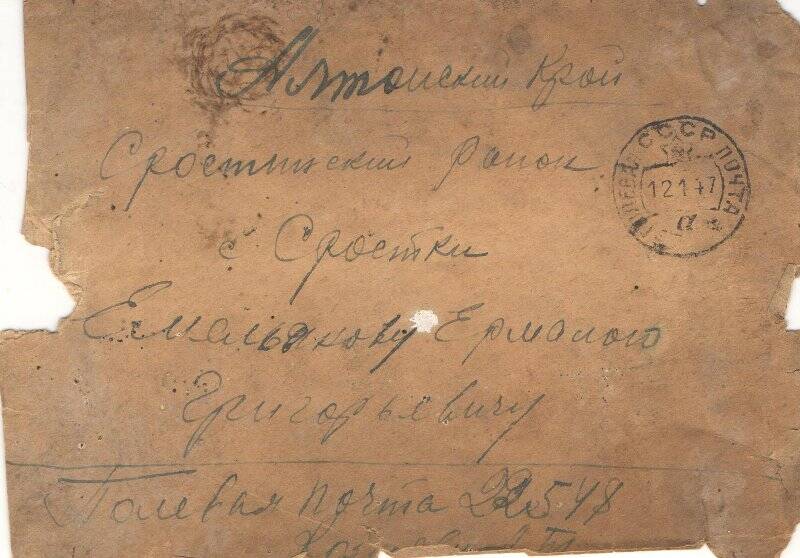 Алтайский Край
Сростинский район
с Сростки
Емельянову Ермолаю
Григорьевичу
Полевая почта 22548
СССР ПОЧТА
12 1 47
а